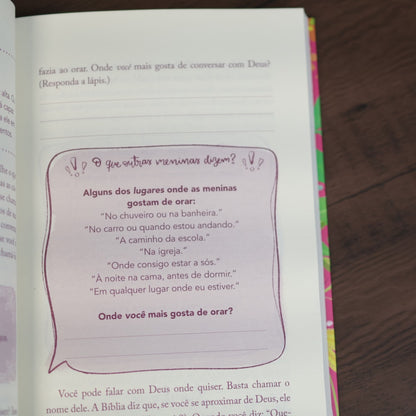 fazia ao orar. Onde você mais gosta de conversar com Deus?
(Responda a lápis.)
O que outras meninas dizem?
Alguns dos lugares onde as meninas
gostam de orar:
"No chuveiro ou na banheira."
"No carro ou quando estou andando."
"A caminho da escola."
"Na igreja."
"Onde consigo estar a sós."
"À noite na cama, antes de dormir."
"Em qualquer lugar onde eu estiver."
Onde você mais gosta de orar?
Você pode falar com Deus onde quiser. Basta chamar o
nome dele. A Bíblia diz que, se você se aproximar de Deus, ele